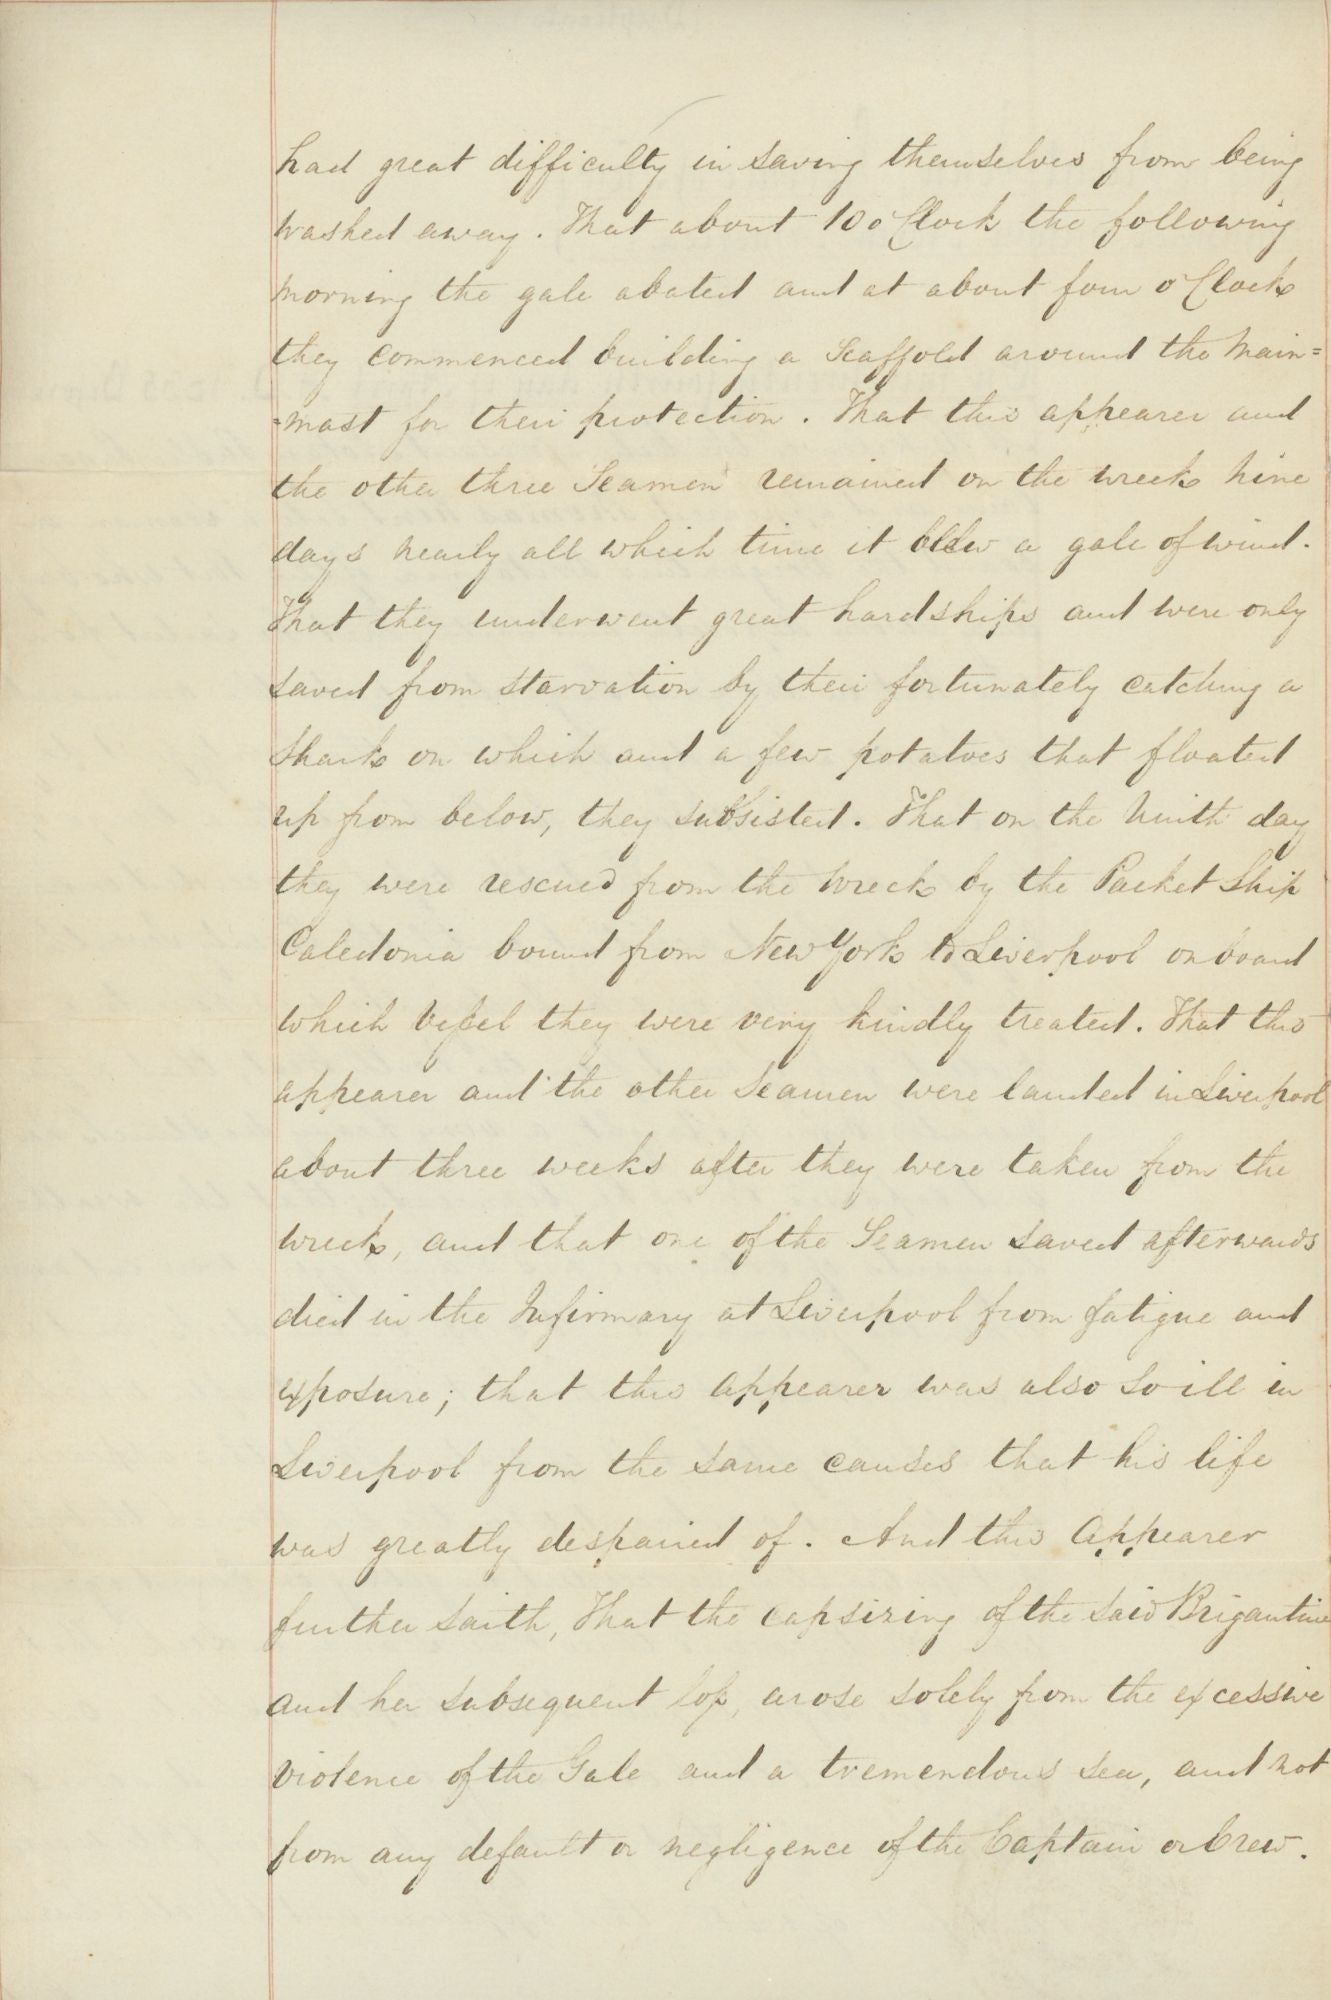 had great difficulty in saving themselves from being
washed away. That about 10 o'Clock the following
morning the gale abated and at about four o'Clock
they commenced building a Scaffold around the Main=
=mast for their protection. That this appearer and
the other three Seamen remained on the wreck nine
days nearly all which time it blew a gale of wind.
That they underwent great hardships and were only
saved from starvation by their fortunately catching a
shark on which and a few potatoes that floated
up from below, they subsisted. That on the Ninth day
they were rescued from the Wreck by the Packet Ship
Caledonia bound from New York to Liverpool on board
which Vessel they were very kindly treated. That this
appearer and the other Seamen were landed in Liverpool
about three weeks after they were taken from the
wreck, and that one of the Seamen saved afterwards
died in the Infirmary at Liverpool from fatigue and
exposure; that this appearer was also so ill in
Liverpool from the same causes that his life
was greatly despaired of. And this Appearer
further saith, That the capsizing of the said Brigantine
and her subsequent loss, arose solely from the excessive
violence of the Gale and a tremendous sea, and not
from any default or negligence of the Captain or Crew.